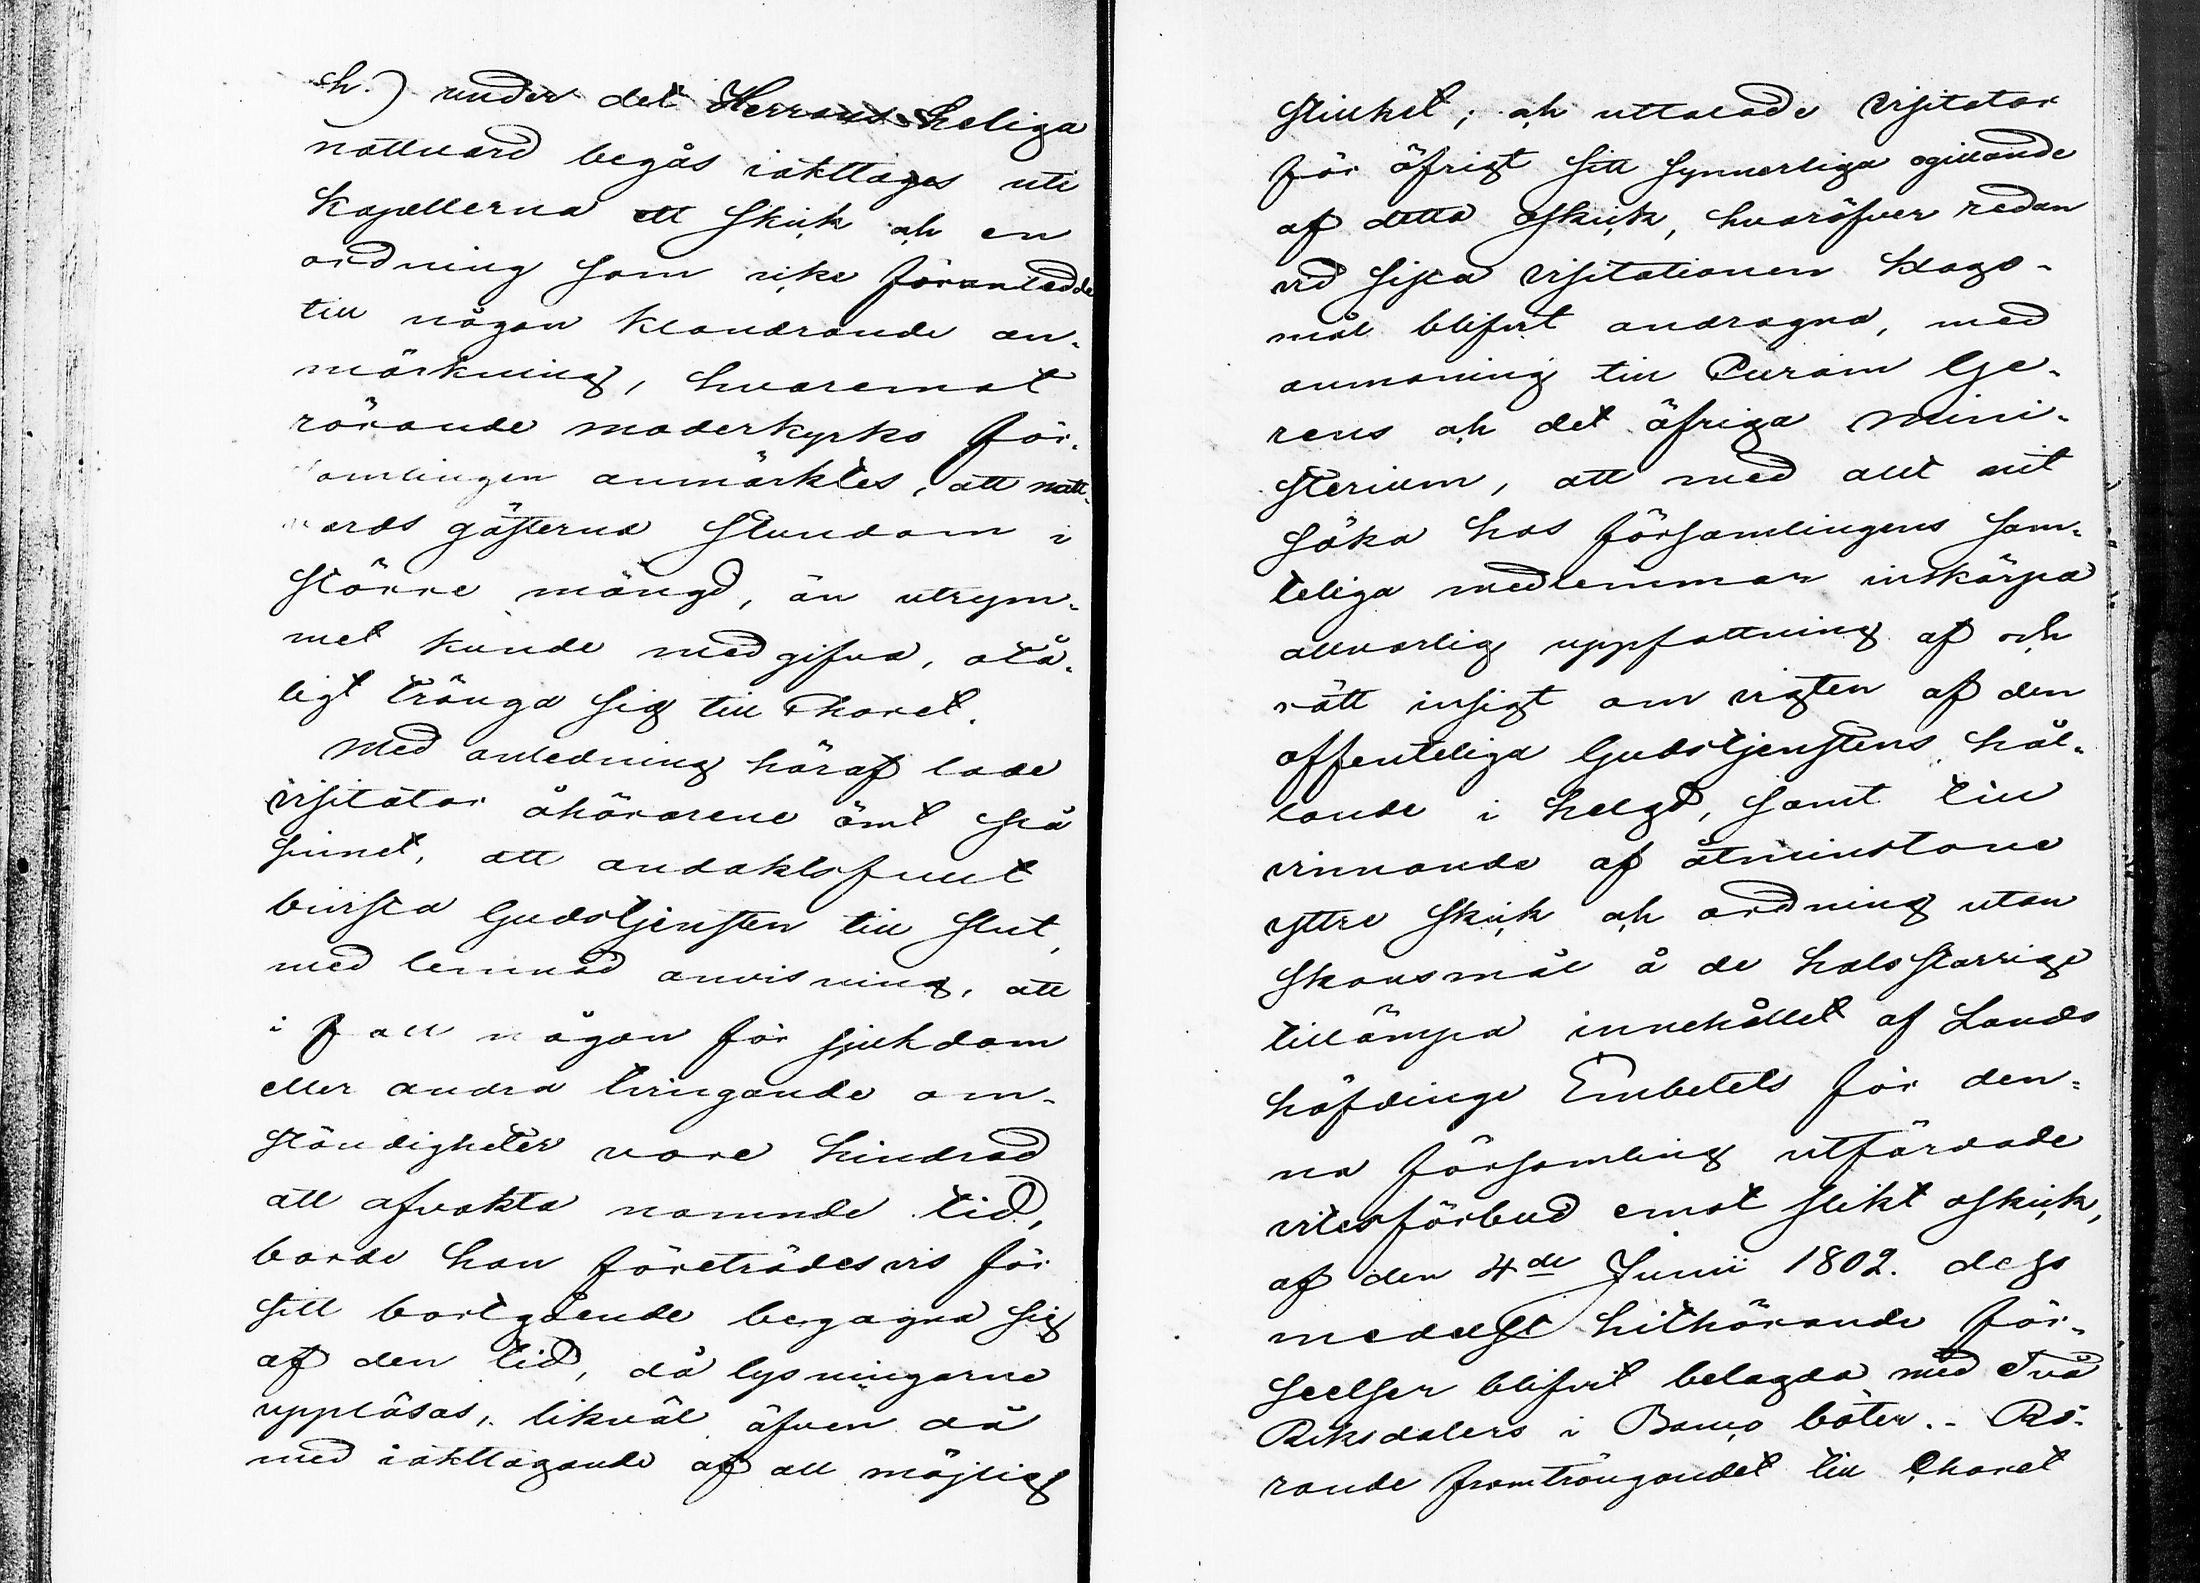 h.) under det Herrans Heliga
nattvard begås iakttages uti
Kapellerna ett skick och en
ordning som icke föranledde
till någon klandrande an-
märkning, hvaremot
rörande moderkyrko för-
samlingen anmärktes, att natt-
vards gästerna stundom i
större mängd, än utrym-
met kunde medgifva, otå-
ligt tränga sig till Choret.
Med anledning häraf lade
visitator åhörarene ömt på
sinnet, att andaktsfullt
bivista Gudstjensten till slut,
med lemnad anvisning, att
i fall någon för sjukdom
eller andra tvingande om-
ständigheter vore hindrad
att afvakta nämnde tid,
borde han företrädesvis för
sitt bortgående begagna sig
af den tid, då lysningarne
uppläsas, likväl äfven då
med iakttagande af all möjlig
stillhet; och uttalade visitator
för öfrigt sitt synnerliga ogillande
af detta oskick, hvaröfver redan
vid sista visitationen klago-
mål blifvit andragna, med
anmaning till Curam Ge-
rens och det öfriga Mini-
sterium, att med allt nit
söka hos församlingens sam-
teliga medlemmar inskärpa
allvarlig uppfattning af och
rätt insigt om vigten af den
offenteliga Gudstjenstens hål-
lande i helgd, samt till
vinnande af åtminstone
yttre skick och ordning utan
skonsmål å de halsstarrige
tillämpa innehållet af Lands
höfdinge Embetets för den-
na församling utfärdade
vitesförbud emot slikt oskick,
af den 4de Junii 1802. dess
medelst hithörande för-
seelser blifvit belagda med Två
Riksdalers i Banco böter. - Rö-
rande framträngandet till Choret